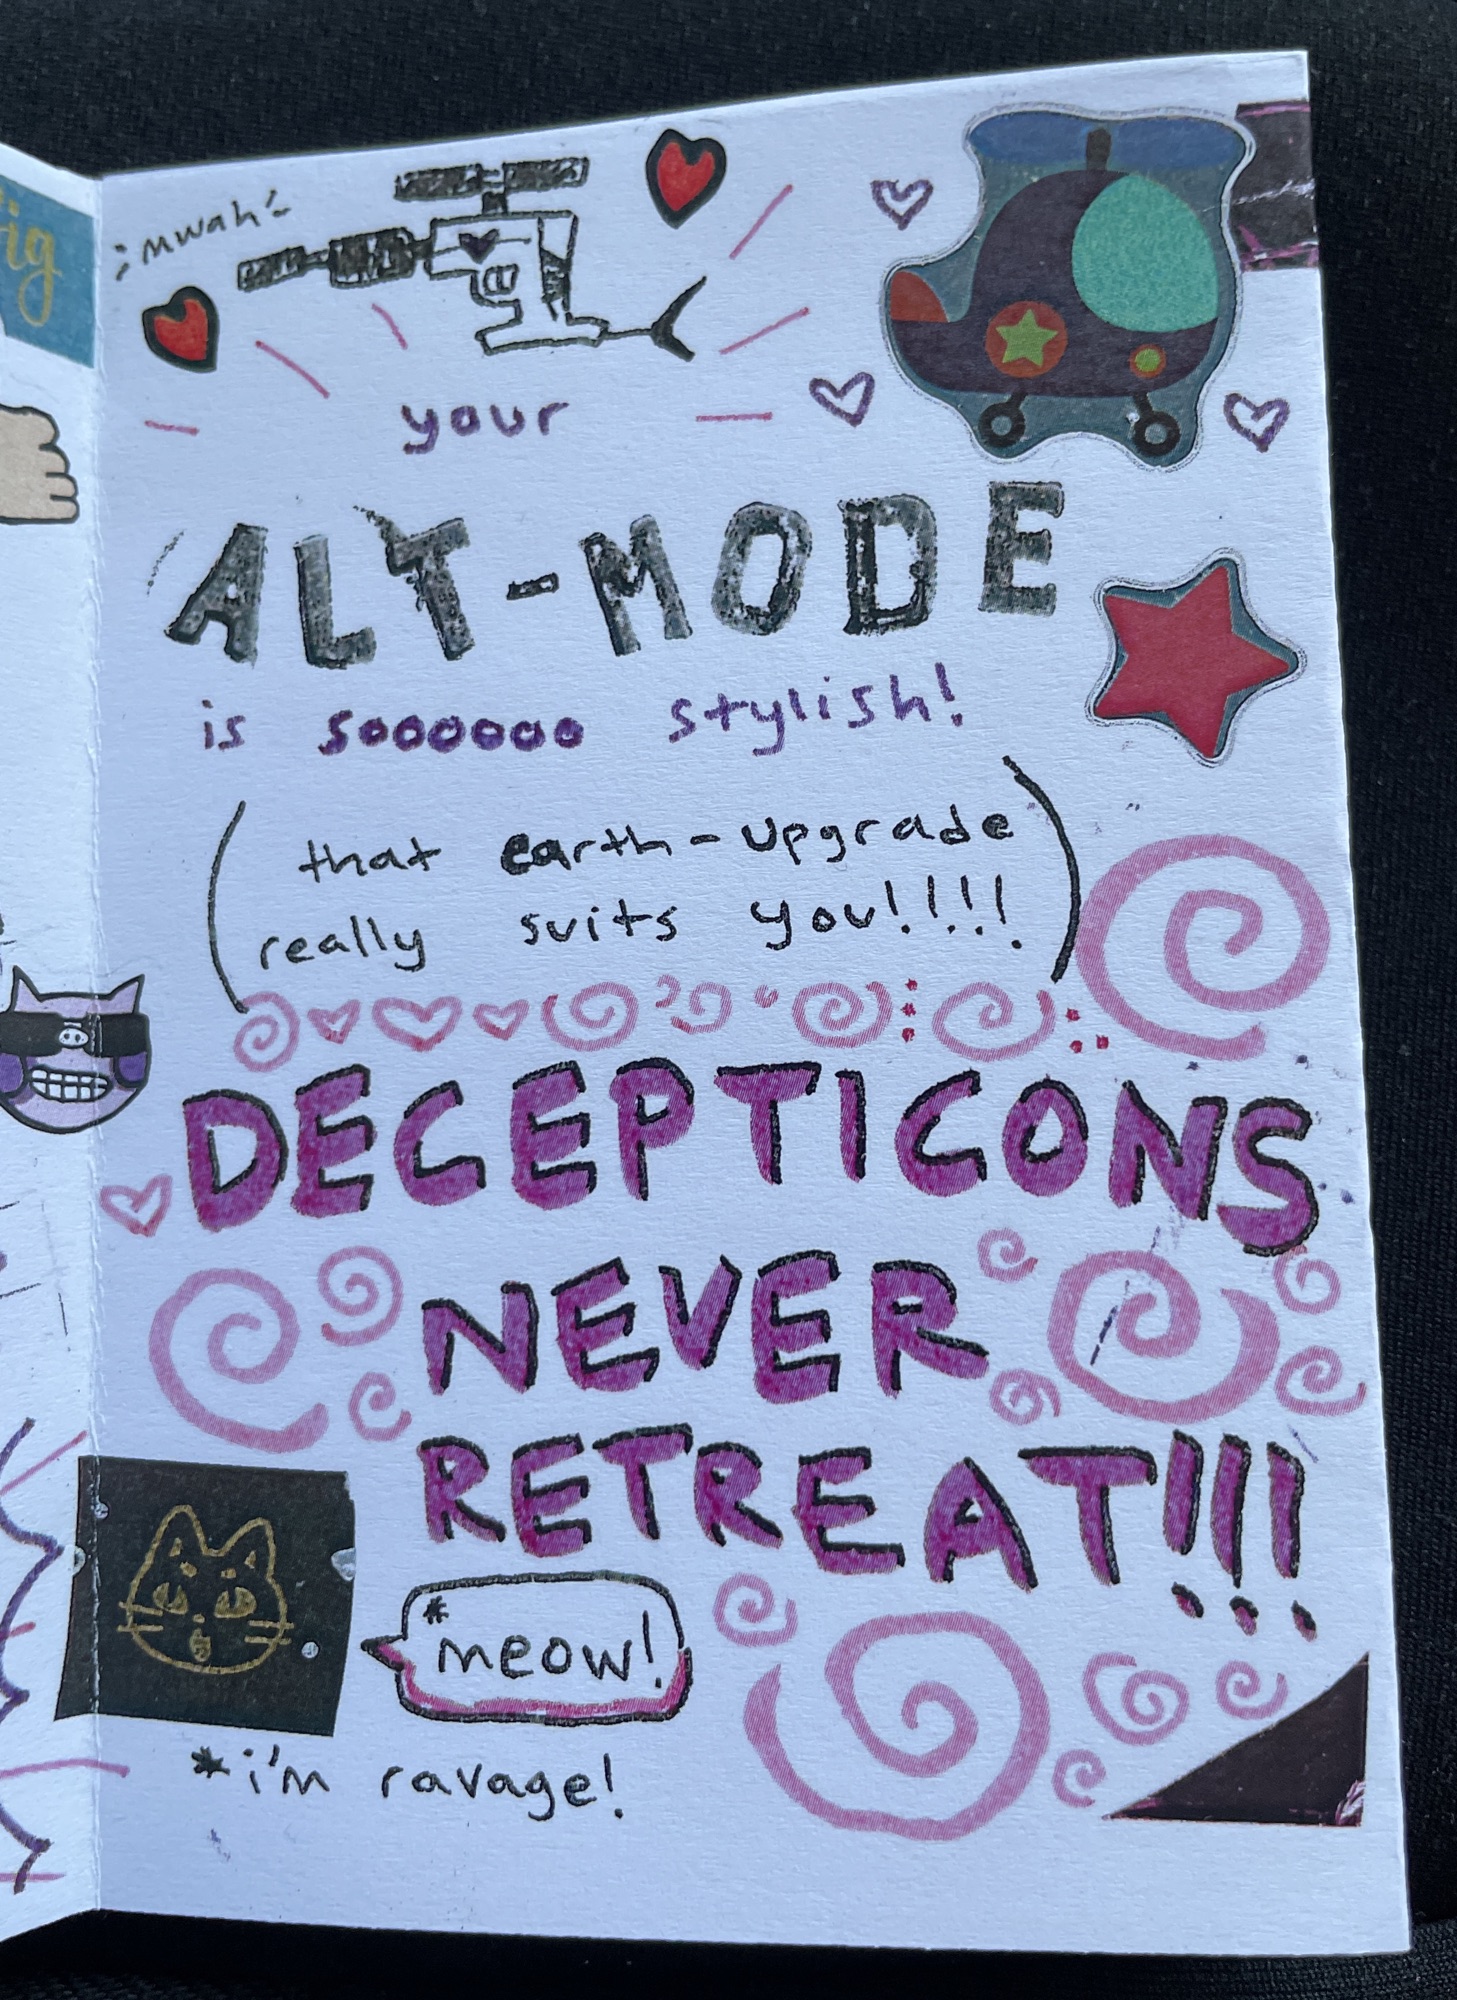 mwah
ig
your
ALT-MODE
is sooooooo stylish!
(that earth-upgrade
really suits you!!!!)
DECEPTICONS
NEVER
RETREAT!!!
*meow!
*i'm ravage!